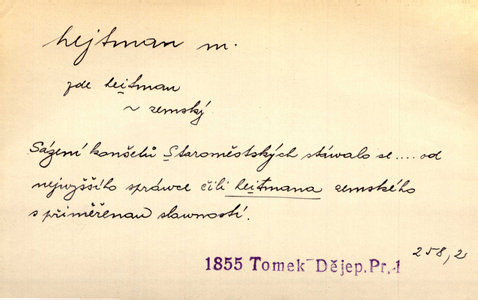 hejtman m.
zde heitman
~ zemský
Sázení konšelů Staroměstských stávalo se .... od
nejwyššího spráwce čili heitmana zemského
s přiměřenau slawností.
258,2
1855 Tomek Dějep. Pr. 1